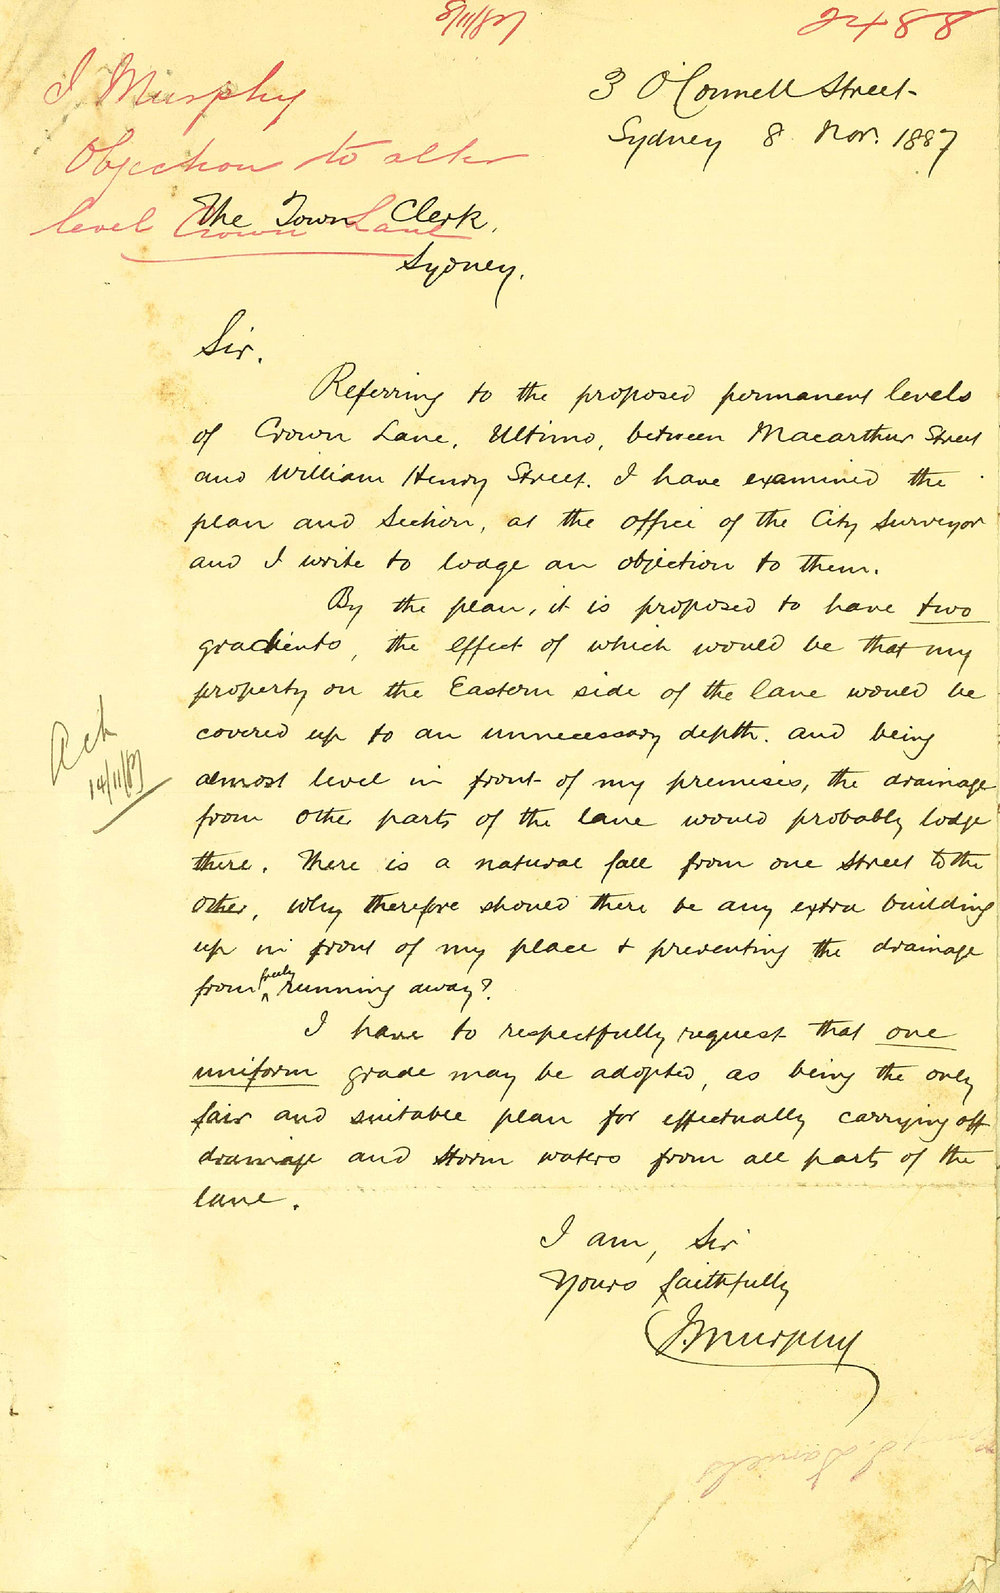 8/11/87
2488
J Murphy
Objection to alter
level Crown Lane
3 O'Connell Street
Sydney 8 Nov. 1887
The Town Clerk,
Sydney.
Sir.
Referring to the proposed permanent levels
of Crown Lane, Ultimo, between Macarthur Street
and William Henry Street. I have examined the
plan and Section, at the office of the City Surveyor
and I write to lodge an objection to them.
By the plan, it is proposed to have two
gradients, the effect of which would be that my
property on the Eastern side of the lane would be
covered up to an unnecessary depth. and being
almost level in front of my premises, the drainage
from other parts of the lane would probably lodge
there. There is a natural fall from one street to the
other, why therefore should there be any extra building
up in front of my place & preventing the drainage
from freely running away?
I have to respectfully request that one
uniform grade may be adopted, as being the only
fair and suitable plan for effectually carrying off
drainage and storm waters from all parts of the
lane.
I am, Sir
Yours faithfully
J. Murphy
Ack
14/11/87